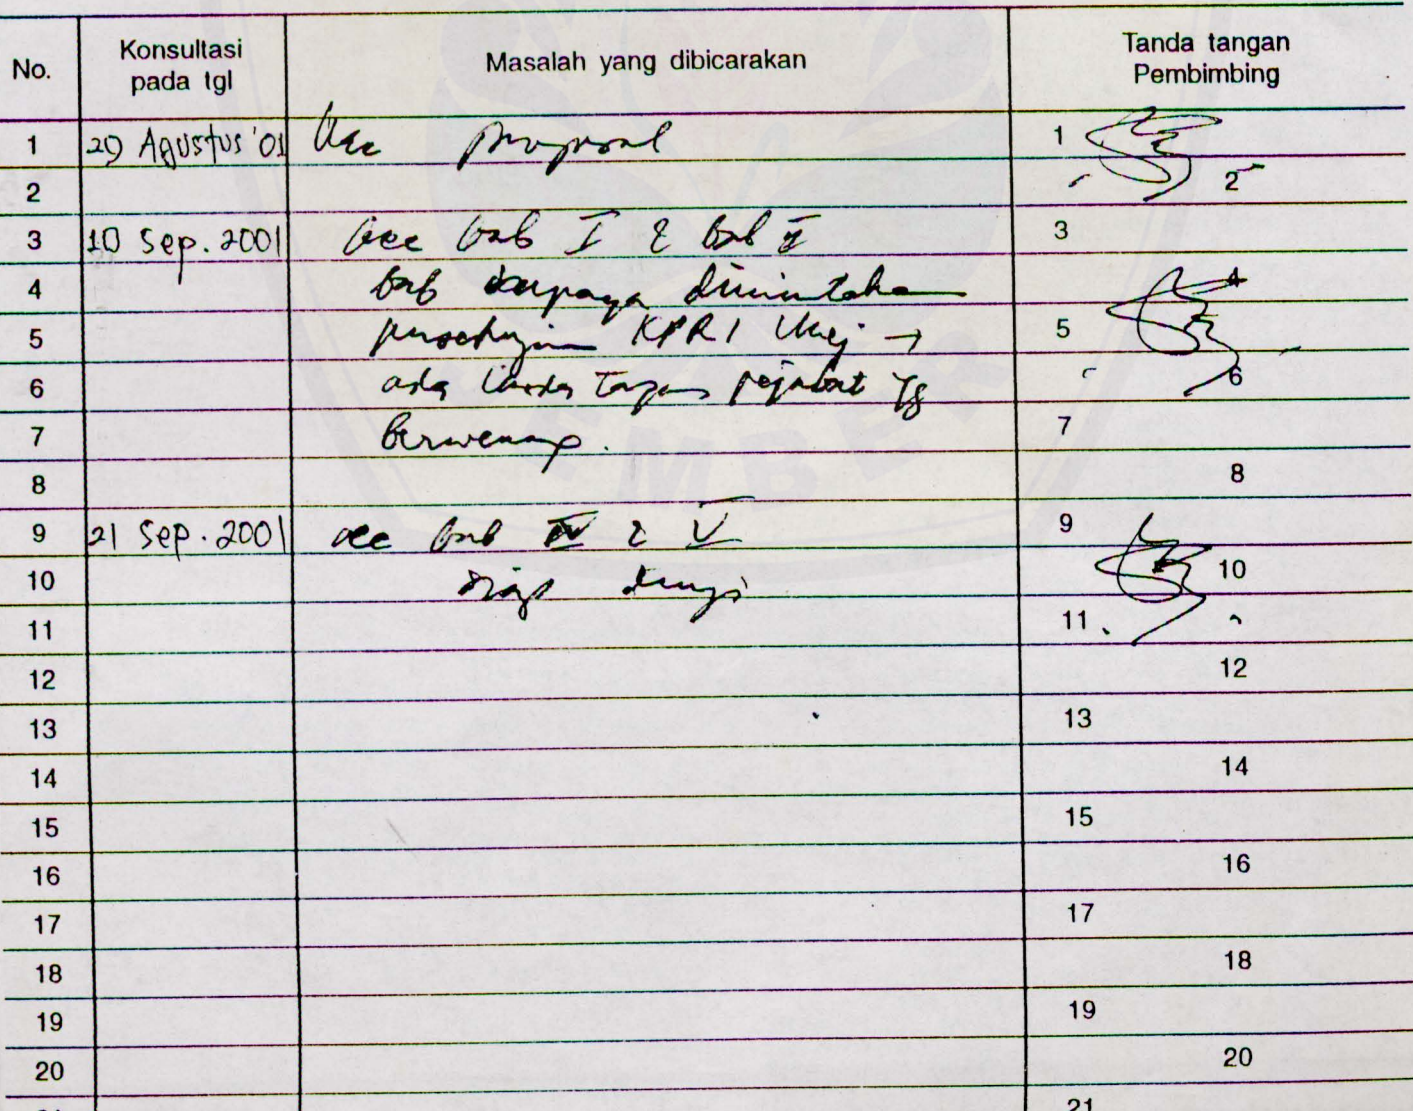 No. Konsultasi pada tgl Masalah yang dibicarakan Tanda tangan Pembimbing
1 29 Agustus '01 Acc proposal 1
2 2
3 10 Sep. 2001 Acc bab I & bab II 3
4 bab supaya dimintakan 4
5 persetujuan KPRI Unej → 5
6 ada tanda tangan pejabat yg 6
7 berwenang. 7
8 8
9 21 Sep. 2001 acc bab IV & V 9
10 siap diuji 10
11 11
12 12
13 13
14 14
15 15
16 16
17 17
18 18
19 19
20 20
21
EMBER